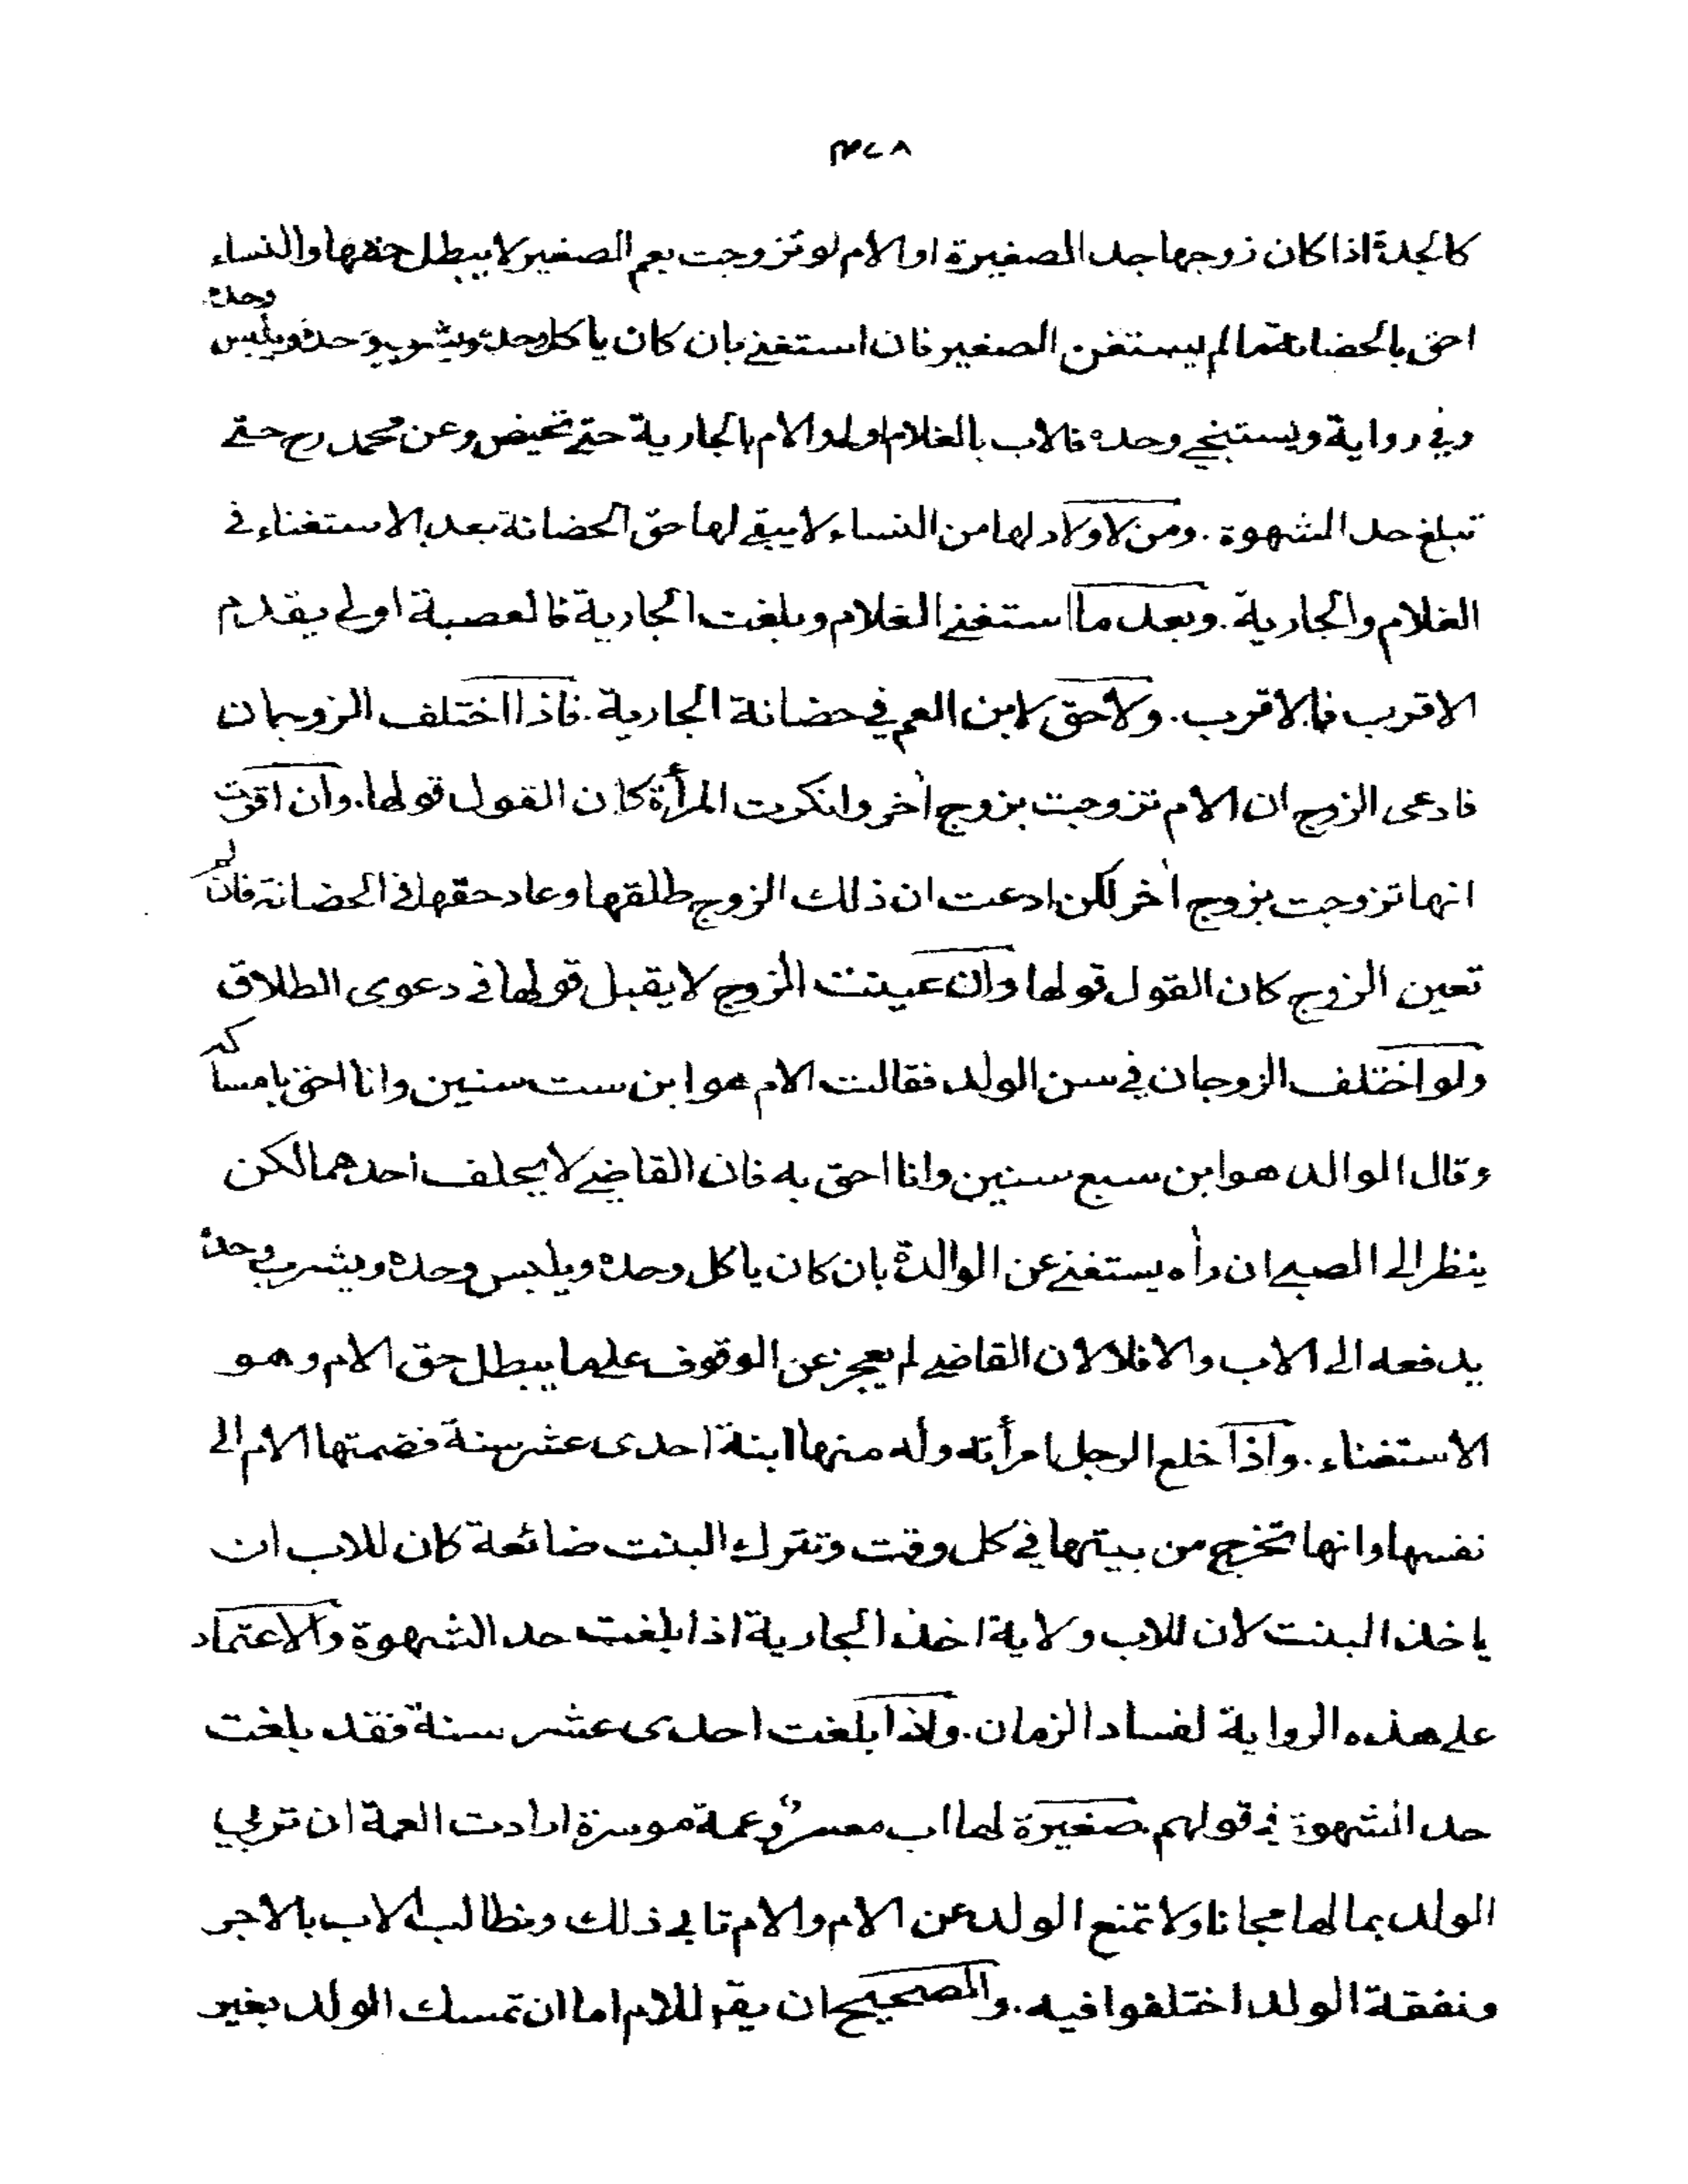 ٣٧٨
كالجدة اذا كان زوجها جد الصغيرة او الام لو تزوجت بعم الصغير لا يبطل حقها والنساء
احق بالحضانة ما لم يستغن الصغير فان استغنى بان كان ياكل وحده ويشرب وحده ويلبس وحده
وفي رواية ويستنجي وحده فالاب بالغلام اولى والام بالجارية حتى تحيض وعن محمد رح حتى
تبلغ حد الشهوة . ومن لا ولاد لها من النساء لا يبقى لها حق الحضانة بعد الاستغناء في
الغلام والجارية . وبعد ما استغنى الغلام وبلغت الجارية فالعصبة اولى يقدم
الاقرب فالاقرب . ولا حق لابن العم في حضانة الجارية . فاذا اختلف الزوجان
فادعى الزوج ان الام تزوجت بزوج اٰخر وانكرت المرأة كان القول قولها . وان اقرت
انها تزوجت بزوج اٰخر لكن ادعت ان ذلك الزوج طلقها وعاد حقها في الحضانة فان لم
تعين الزوج كان القول قولها وان عينت الزوج لا يقبل قولها في دعوى الطلاق
ولو اختلف الزوجان في سن الولد فقالت الام هو ابن ست سنين وانا احق بامساكه
وقال الوالد هو ابن سبع سنين وانا احق به فان القاضي لا يحلف احدهما لكن
ينظر الى الصبي ان رأه يستغني عن الوالدة بان كان ياكل وحده ويلبس وحده ويشرب وحده
يدفعه الى الاب والا فلا لان القاضي لم يعجز عن الوقوف على ما يبطل حق الام وهو
الاستغناء . واذا خلع الرجل امرأته وله منها ابنة احدى عشر سنة فضمتها الام الى
نفسها وانها تخرج من بيتها في كل وقت وتترك البنت ضائعة كان للاب ان
ياخذ البنت لان للاب ولاية اخذ الجارية اذا بلغت حد الشهوة والاعتماد
على هذه الرواية لفساد الزمان . واذا بلغت احدى عشر سنة فقد بلغت
حد الشهوة في قولهم . صغيرة لها اب معسر وعمة موسرة ارادت العمة ان تربي
الولد بمالها مجانا ولا تمنع الولد عن الام والام تابى ذلك وتطالب الاب بالاجر
ونفقة الولد اختلفوا فيه . والصحيح ان يقال للام اما ان تمسك الولد بغير